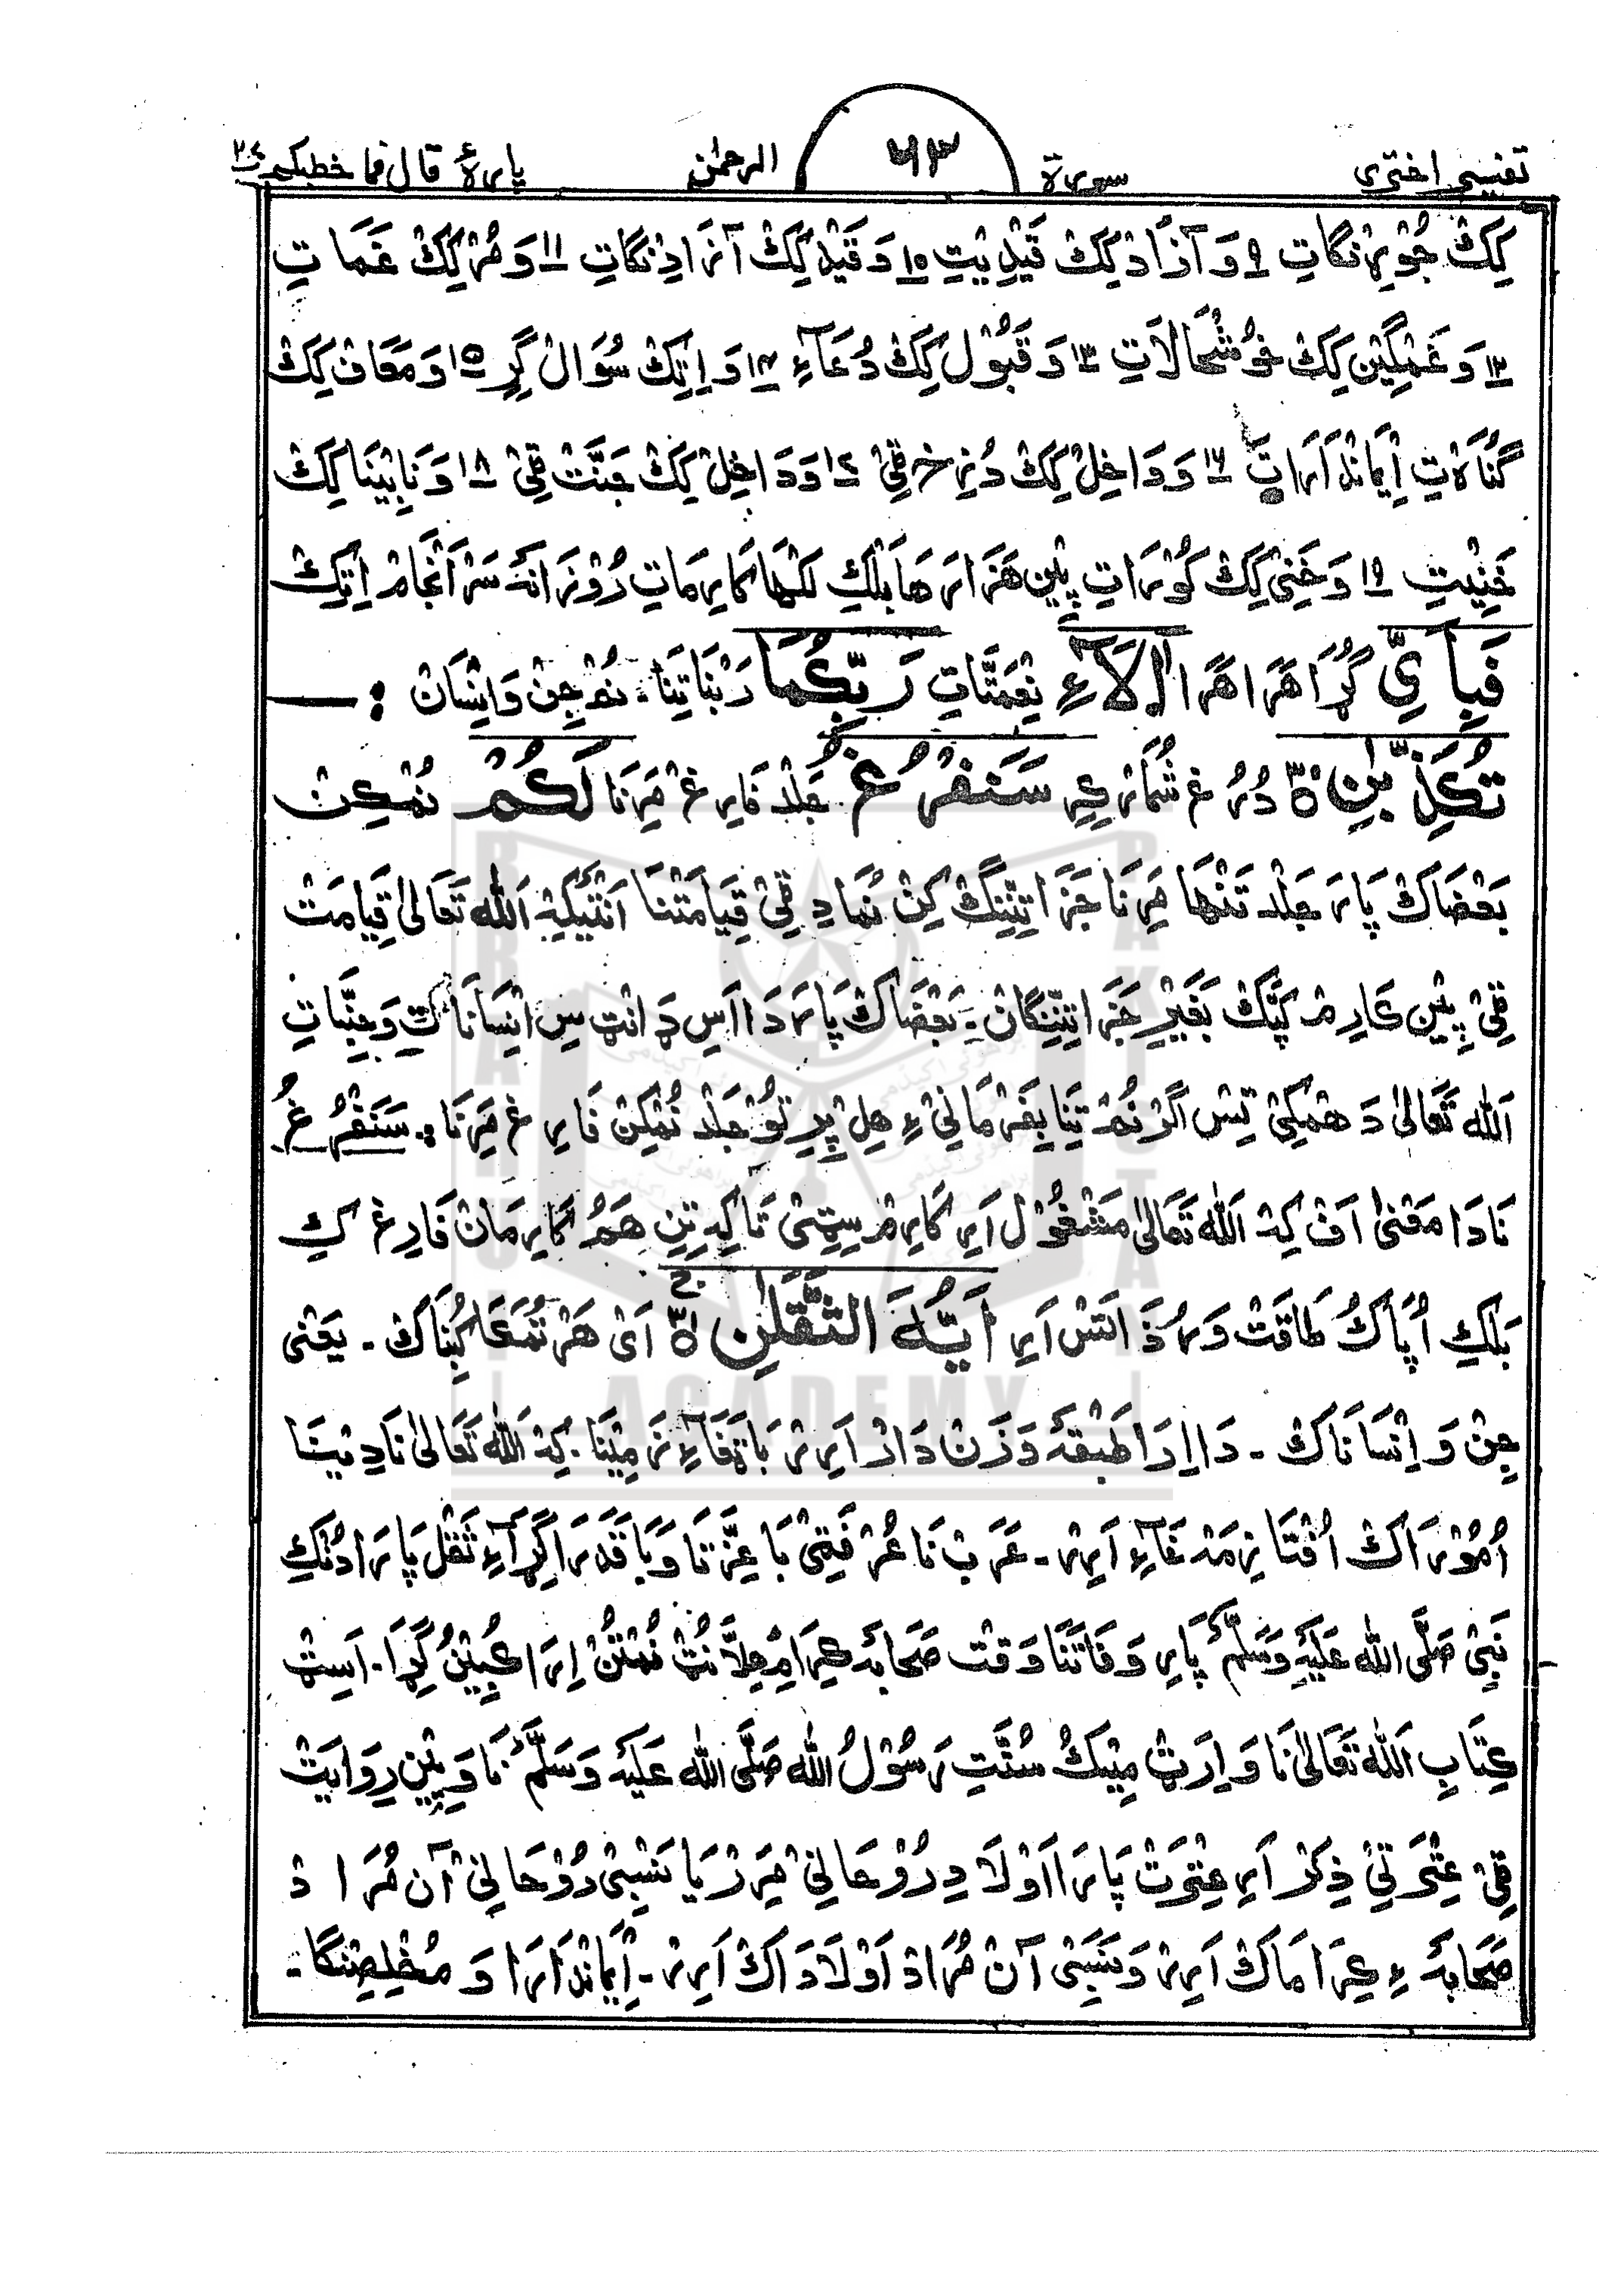 تفسیر اختری سورة ٦٣ الرحمٰن پارۂ قال فما خطبکم ٢٧
کِکْ جُوْڑِنْگاتِ ٩ وَ آزَادْ کِکْ قَیْدِیْتِ ١٠ وَ قَیْدْ کِکْ آزَادِنْگاتِ ١١ وَ مُرْ کِکْ غَمَاتِ
١٢ وَ غَمْگِیْن کِکْ خُوْشْحَالَاتِ ١٣ وَ قَبُوْل کِکْ دُعَآءِ ١٤ وَ اِتِکْ سُوَالْ گِرِ ١٥ وَ مَعَافْ کِکْ
گُنَاہْتِ اِیْمَانْدَارَاتِ ١٦ وَ دَاخِلْ کِکْ دُزِخ قِیْ ١٧ وَ دَاخِلْ کِکْ جَنَّتْ قِیْ ١٨ وَ نَابِیْنَا کِکْ
خَنِیْتِ ١٩ وَ خَنِیْ کِکْ کُوْرَاتِ پِیْن هَزَارَهَا بَلْکِ لَکْهَا کَارِمَاتِ رُوْزَانَہ سَرْاَنْجَامْ اِتِکْ
فَبِاَيِّ گُڑَا هَرَا هَرَا اٰلَآءِ نِعْمَتَاتِ رَبِّكُمَا رَبْنَا تِنَا۔ نُمْ جِنْ وَ اِنْسَانْ :ــ
تُكَذِّبٰنِ ٥ دُرُغ شُمَارْ کِرِ سَنَفْرُغُ جَلْد فَارِغ مَرَنَا لَكُمْ نُمْکِنْ
بَعْضَاکْ پَارَہ جَلْد تَنْهَا مَرَنَا جَزَا تِنِنْگْ کِنْ نُمَا دِ قِیْ قِیَامَتْنَا اَنْتَیْکِہ اَللّٰہ تَعَالٰی قِیَامَتْ
قِیْ پِیْن کَارِمْ کَپَّکْ بَغَیْرِ جَزَا تِنِنْگَانْ۔ بَعْضَاکْ پَارَہ دَا اَسِ دِ اِنْسَانَاتِ وَ جِنَّاتِ
اَللّٰہ تَعَالٰی دَ هَمْکِیْ تِسْ اَگَرْ نُمْ تِنَا بِفَرْمَانِیْ ءِ هِلْ پِرِ تُوْ جَلْد نُمْکِنْ فَارِغ مَرَنَا۔ سَنَفْرُغُ
نَا دَا مَعْنٰی اَفْ کِہ اَللّٰہ تَعَالٰی مَشْغُوْل اَرِ کَارِمْ سِتِیْ تَا کِہ تِن هَمُ کَارِمَانْ فَارِغ کِ
بَلْکِ اُپَاکُ طَاقَتْ وَرُ ذَاتَسْ اَرِ اَيُّهَ الثَّقَلٰنِ ٥ اَیْ هَرْ تُمَّعَا کُبِنَاکْ۔ یَعْنِی
جِنْ وَ اِنْسَانَاکْ۔ دَا اِرَا طَبْقَہ وَزَنْ دَارْ اَرِرْ بَاتِفَآءِ زَمِیْنَا۔ کِہ اَللّٰہ تَعَالٰی نَا دِیْنَا
اُمُوْرَاکْ اُفْتَا زِمَّہ غَآءِ اَرِرْ۔ عَرَبْ نَا عُرْفَتِیْ بَا عِزَّتَا وَ بَا قَدْرَا گِڑَآءِ ثَقَلْ پَارَہ اَدُنْکِ
نَبِیْ صَلَّی اللّٰہ عَلَیْہِ وَسَلَّمْ پَارِ وَفَاتَنَا وَقْت صَحَابَہ کِرَامْ اِلَّا نُتْ نُمْتُنْ اِرَا کُبِیْنُ گِڑَا۔ اَسِٹْ
کِتَابِ اَللّٰہ تَعَالٰی نَا وَ اِرَٹْ مِیْکُ سُنَّتِ رَسُوْلُ اللّٰہ صَلَّی اللّٰہ عَلَیْہ وَسَلَّمْ نَا وَ پِیْن رِوَایَتْ
قِیْ عِتْرَتِیْ ذِکْرْ اَرِ عِتْرَتْ پَارَہ اَوْلَادِ رُوْحَانِیْ مَرِرْ یَا نَسَبِیْ رُوْحَانِیْ آن مُرَادْ
صَحَابَہ ءِ کِرَامَاکْ اَرِرْ وَ نَسَبِیْ آنْ مُرَادْ اَوْلَادَاکْ اَرِرْ۔ اِیْمَانْدَارَا وَ مُخْلِصِنْگَا۔
BRAHUI
ACADEMY
PAKISTAN